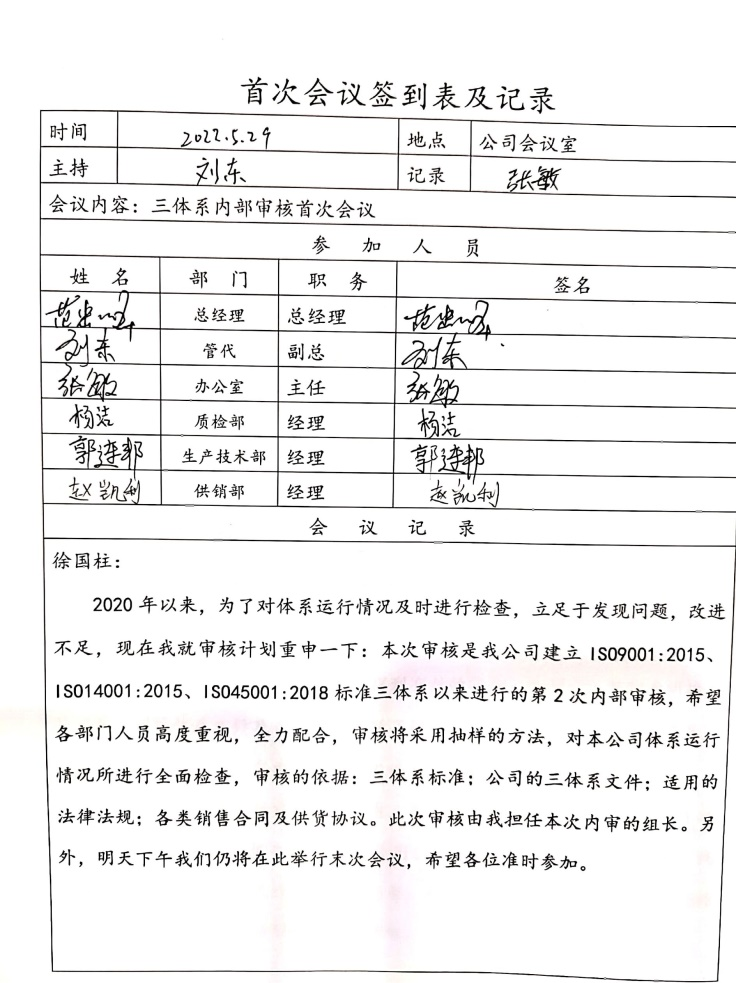 首次会议签到表及记录
时间 2022.5.29 地点 公司会议室
主持 刘东 记录 张敏
会议内容：三体系内部审核首次会议
参 加 人 员
姓 名 部 门 职 务 签名
总经理 总经理
刘东 管代 副总 刘东
张敏 办公室 主任 张敏
杨洁 质检部 经理 杨洁
郭连邦 生产技术部 经理 郭连邦
赵凯利 供销部 经理 赵凯利
会 议 记 录
徐国柱：
2020 年以来，为了对体系运行情况及时进行检查，立足于发现问题，改进
不足，现在我就审核计划重申一下：本次审核是我公司建立 ISO9001:2015、
ISO14001:2015、ISO45001:2018 标准三体系以来进行的第 2 次内部审核，希望
各部门人员高度重视，全力配合，审核将采用抽样的方法，对本公司体系运行
情况所进行全面检查，审核的依据：三体系标准；公司的三体系文件；适用的
法律法规；各类销售合同及供货协议。此次审核由我担任本次内审的组长。另
外，明天下午我们仍将在此举行末次会议，希望各位准时参加。